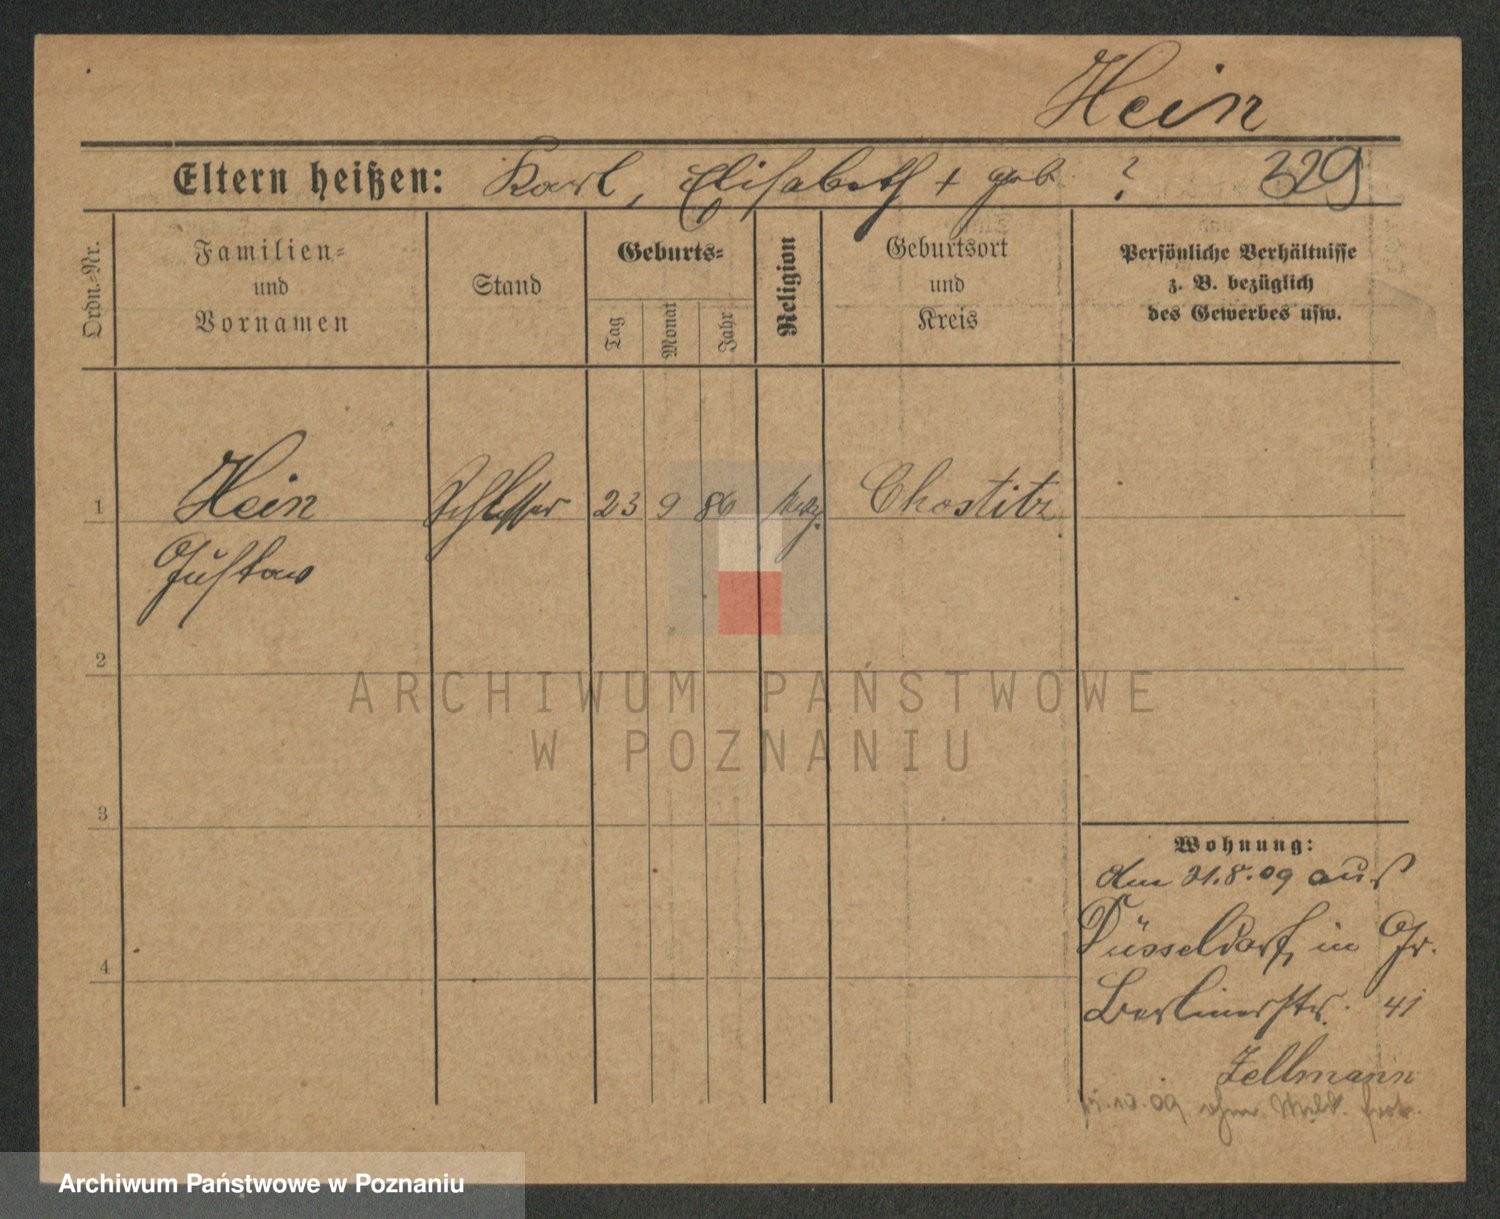 Hein
Eltern heißen: Karl, Elisabeth + geb ? 329
Ordn.-Nr.
Familien-
und
Vornamen
Stand
Geburts-
Tag
Monat
Jahr
Religion
Geburtsort
und
Kreis
Persönliche Verhältnisse
z. B. bezüglich
des Gewerbes usw.
1 Hein Schlosser 23 9 86 Chostitz
Gustav
2
3
4
ARCHIWUM PAŃSTWOWE
W POZNANIU
Wohnung:
am 21.8.09 aus
Düsseldorf, in Gr.
Berlinerstr. 41
Zellmann
10.09 ohne Meld.
Archiwum Państwowe w Poznaniu